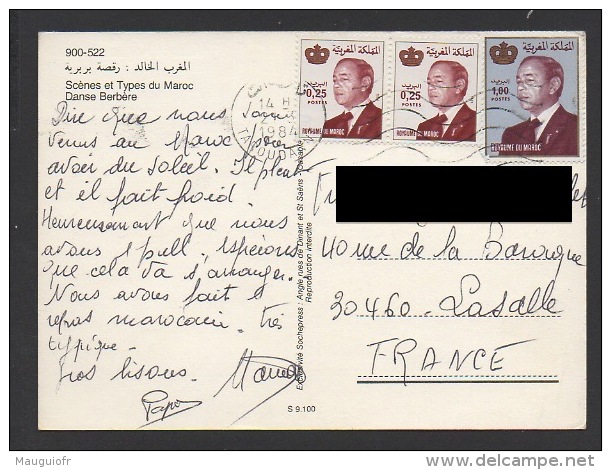 900-522
المغرب الخالد : رقصة بربرية
Scènes et Types du Maroc
Danse Berbère
Dire que nous sommes
venus au Maroc pour
avoir du soleil. Il pleut
et il fait froid.
Heureusement que nous
avons 1 pull, espérons
que cela va s'arranger.
Nous avons fait 1
repas marocain. très
typique.
gros bisous.
Papou
Mauguiofr
S 9.100
Exclusivité Sochepress : Angle rues de Dinant et St Saëns Casablanca
Reproduction interdite
14 H
1984
TAROUDANT
المملكة المغربية
البريد
0,25
POSTES
ROYAUME DU MAROC
المملكة المغربية
البريد
0,25
POSTES
ROYAUME DU MAROC
المملكة المغربية
البريد
1,00
POSTES
ROYAUME DU MAROC
40 rue de la
30460. Lasalle
FRANCE
www.delcampe.net